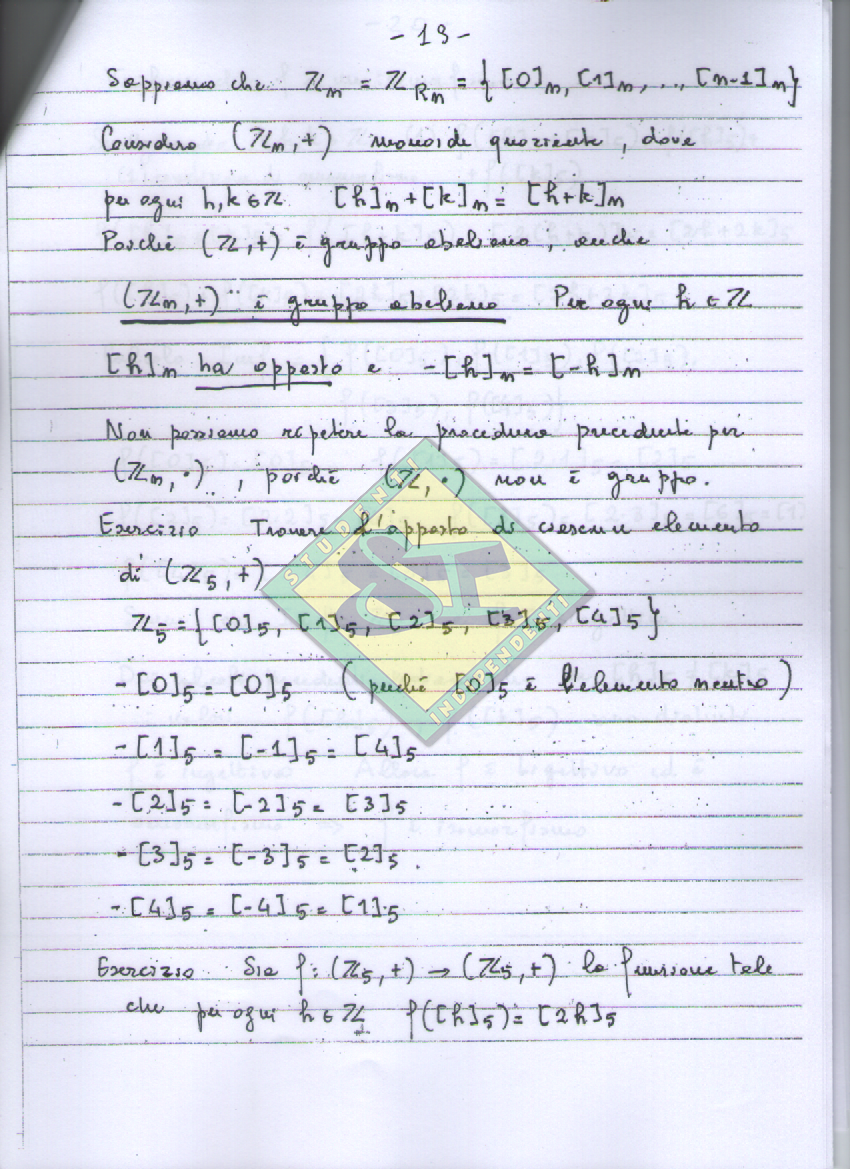 - 19 -
Sappiamo che ℤn = ℤRn = {[0]n, [1]n, ..., [n-1]n}
Considero (ℤn,+) monoide quoziente, dove
per ogni h,k ∈ ℤ [h]n + [k]n = [h+k]n
Poiché (ℤ,+) è gruppo abeliano, anche
(ℤn,+) è gruppo abeliano Per ogni h ∈ ℤ
[h]n ha opposto e -[h]n = [-h]n
Non possiamo ripetere la procedura precedente per
(ℤn, ·), poiché (ℤ, ·) non è gruppo.
Esercizio Trovare l'opposto di ciascun elemento
di (ℤ5,+)
ℤ5 = {[0]5, [1]5, [2]5, [3]5, [4]5}
-[0]5 = [0]5 (perché [0]5 è l'elemento neutro)
-[1]5 = [-1]5 = [4]5
-[2]5 = [-2]5 = [3]5
-[3]5 = [-3]5 = [2]5
-[4]5 = [-4]5 = [1]5
Esercizio Sia f: (ℤ5,+) → (ℤ5,+) la funzione tale
che per ogni h ∈ ℤ f([h]5) = [2h]5
STUDENTI
SI
INDIPENDENTI